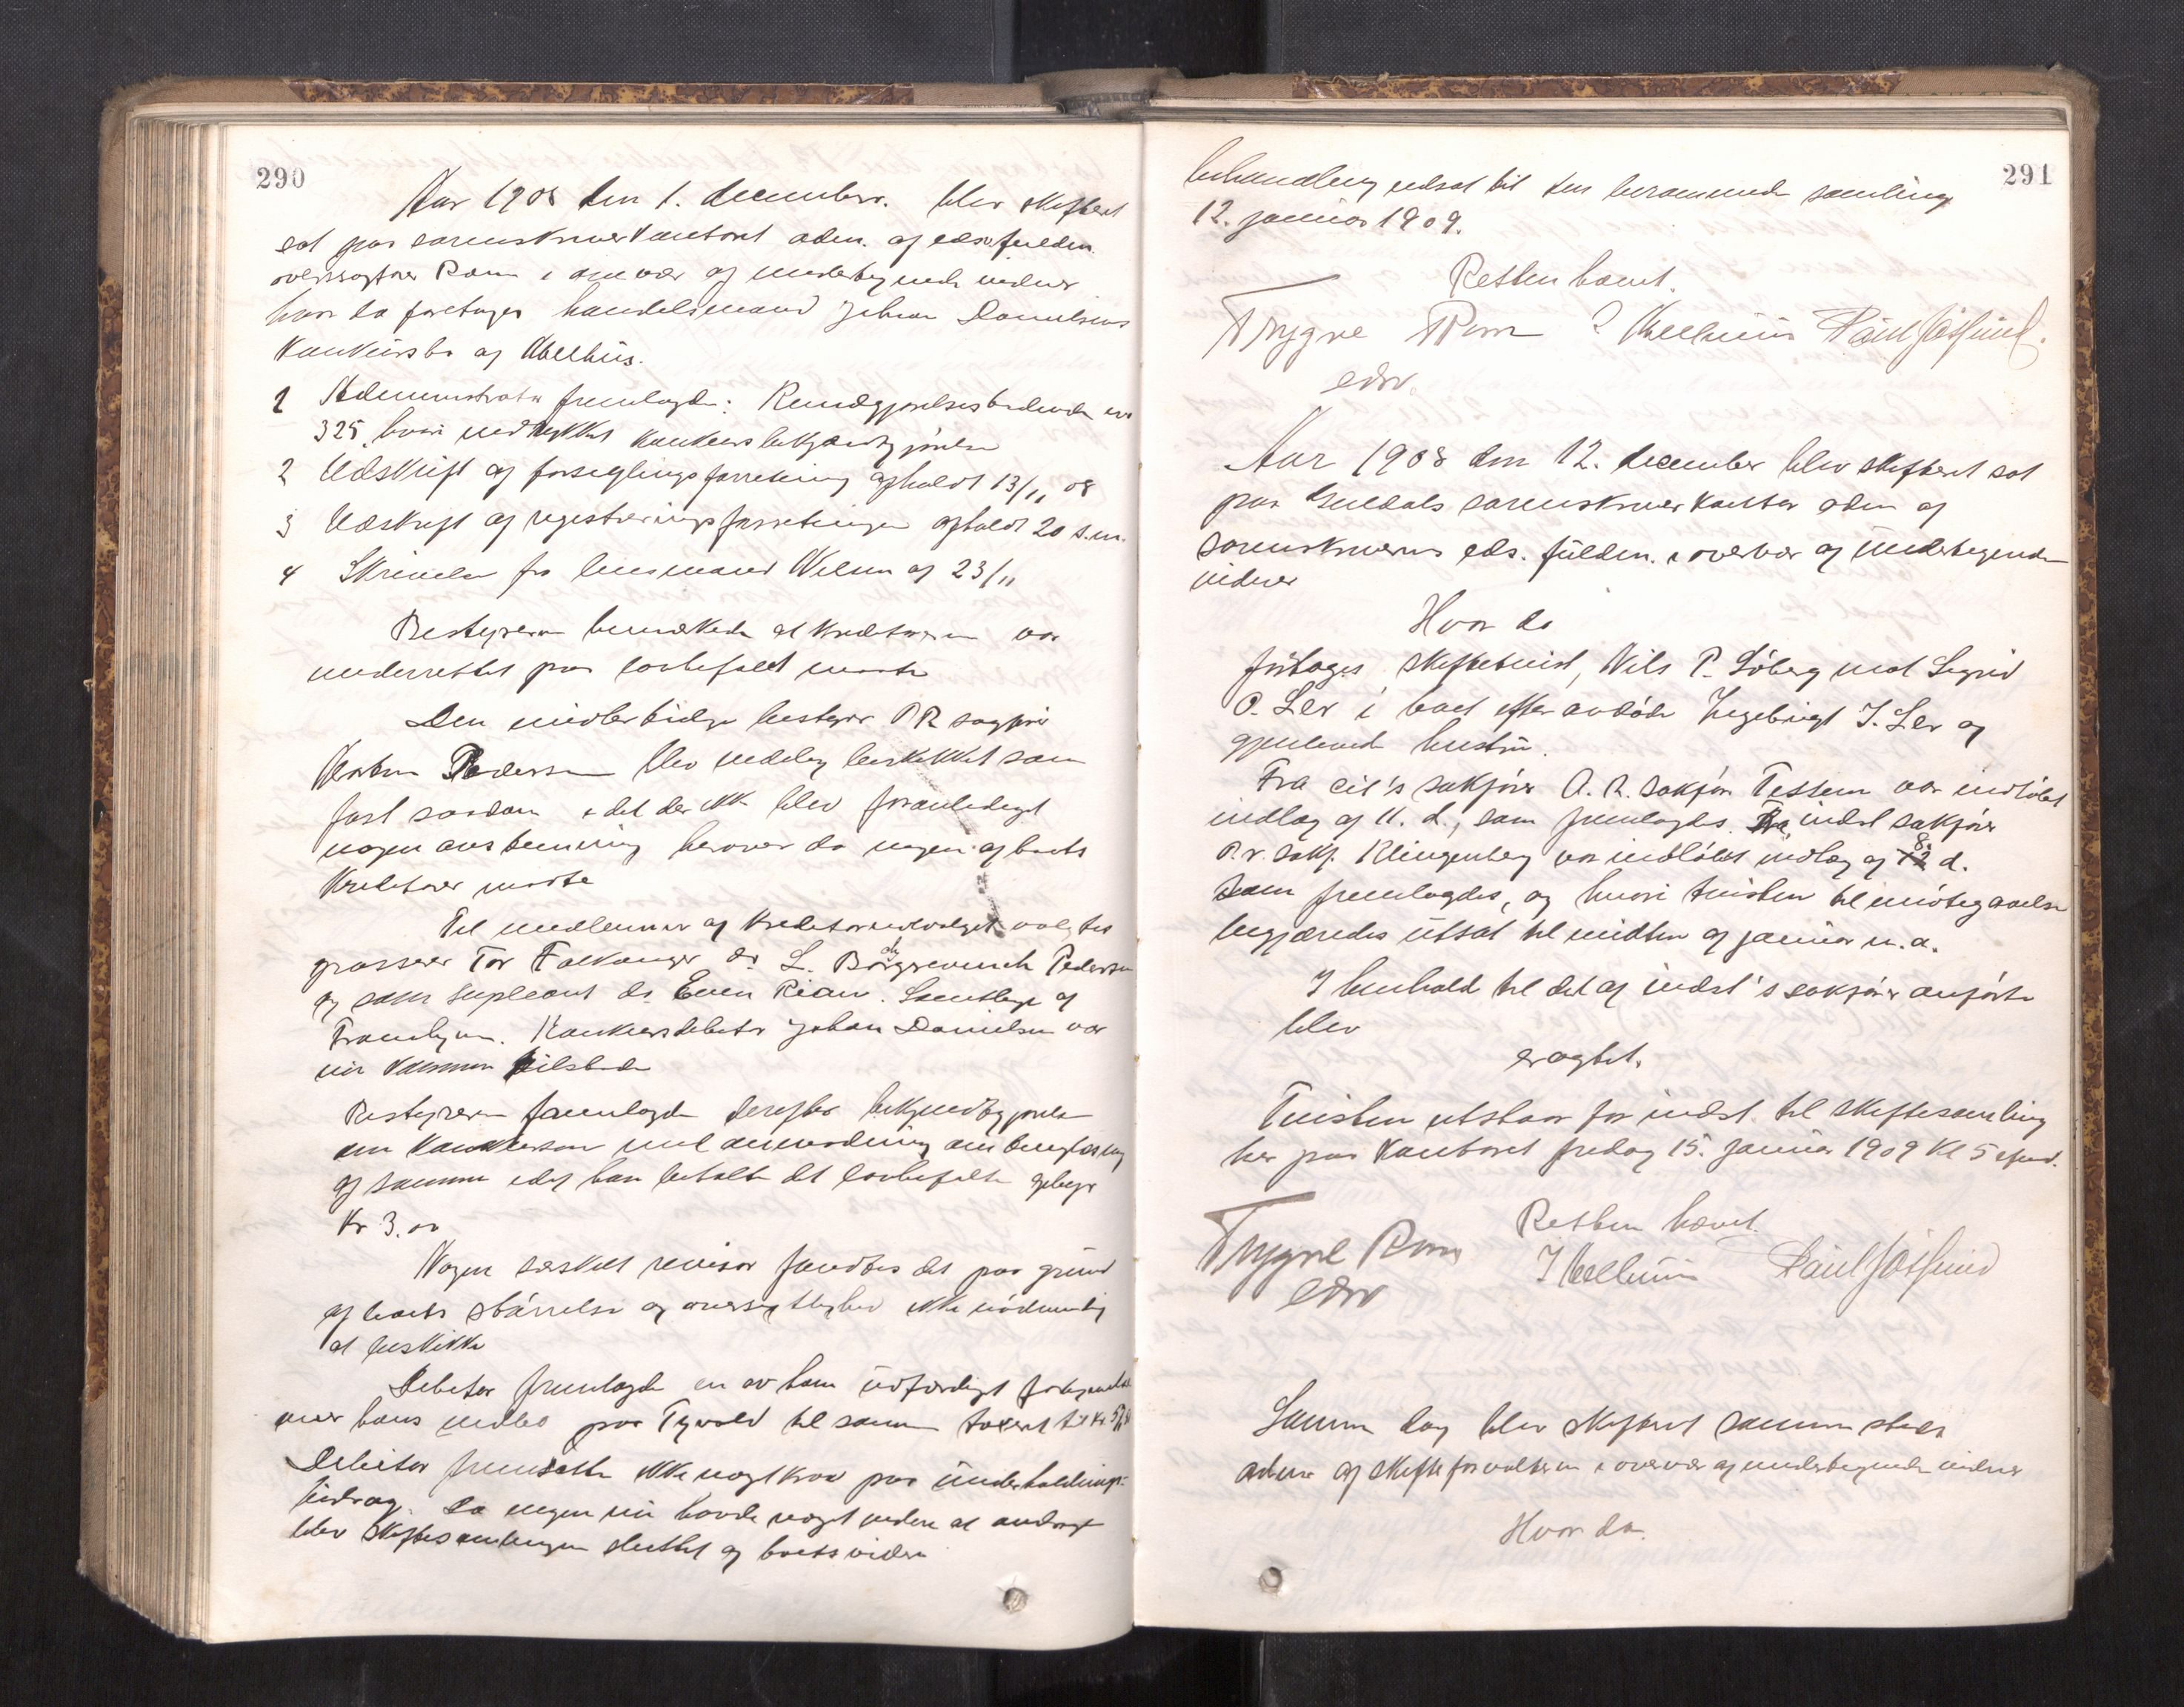 290
Aar 1908 den 1. december. blev skifteret
sat paa sorenskriverkontoret adm. af edsv. fuldm.
overrsagfører Rom i overvær af undertegnede vidner
hvor da foretoges handelsmand Johan Danielsens
konkursbo af Melhus.
1 Administrator fremlagde: Kundgjørelsestidende nr
325. hvori indrykket konkursbekjendtgjørelse
2 Udskrift af forseglingsforretning afholdt 13/11 08
3 Udskrift af registreringsforretningen afholdt 20 s.m.
4 Skrivelse fra lensmand Wilsen af 23/11
Bestyreren bemærkede at kreditorerne var
underrettet paa lovbefalet maate
Den midlertidige bestyrer O.R. sagfør
Pedersen blev endelig beskikket som
fast saadan idet der ikke blev foranlediget
nogen avstemning herover da ingen af boets
kreditorer mødte
Til medlemmer af kreditorudvalget valgtes
grosserer Tor Falkanger og L. Borgrevinck Pedersen
og som supleant do Even Rian. Samtlige af
Trondhjem. Konkursdebitor Johan Danielsen var
nu kommen tilstede
Bestyreren fremlagde derefter bekjendtgjørelse
om konkursen med anmodning om tinglæsning
af samme idet han betalte det lovbefalte gebyr
Kr 3.00
Nogen særskilt revisor fandtes det paa grund
af boets størrelse og oversigtlighed ikke nødvendig
at beskikke
Debitor fremlagde en av ham udfærdiget fortegnelse
over hans indbo paa Tyvold til sammen takseret til Kr
Debitor fremsatte ikke noget krav paa underholdnings-
bidrag. Da ingen nu havde noget videre at andrage
blev skiftesamlingen sluttet og boets videre
291
behandling udsat til den berammede samling
12. januar 1909.
Retten hævet.
Trygve Rom J Melhuus Paul Jossund.
edsv.
Aar 1908 den 12. december blev skifteret sat
paa Guldals sorenskriverkontor adm af
sorenskriverens eds. fuldm. i overvær af undertegnede
vidner
Hvor da
foretoges skiftetvist, Nils P. Løberg mot Sigrid
O. Ler i boet efter avdøde Ingebrigt J. Ler og
gjenlevende hustru.
Fra cit's sakfører O. R. sakfør. Tessem var indløbet
indlæg af 11. d., som fremlagdes. Fra indst sakfører
O.r. sakf. Klingenberg var indløbet indlæg af 8 d.
som fremlagdes, og hvori tvisten til imøtegaaelse
begjæredes utsat til midten af januar n.a.
I henhold til det af indst's sakfører anførte
blev
eragtet.
Tvisten utstaar for indst. til skiftesamling
her paa kontoret fredag 15. januar 1909 kl 5 efmd.
Retten hævet.
Trygve Rom J Melhuus Paul Jossund
edsv
Samme dag blev skifteret samme steds
adm. af skifteforvalteren i overvær af undertegnede vidner
Hvor da.